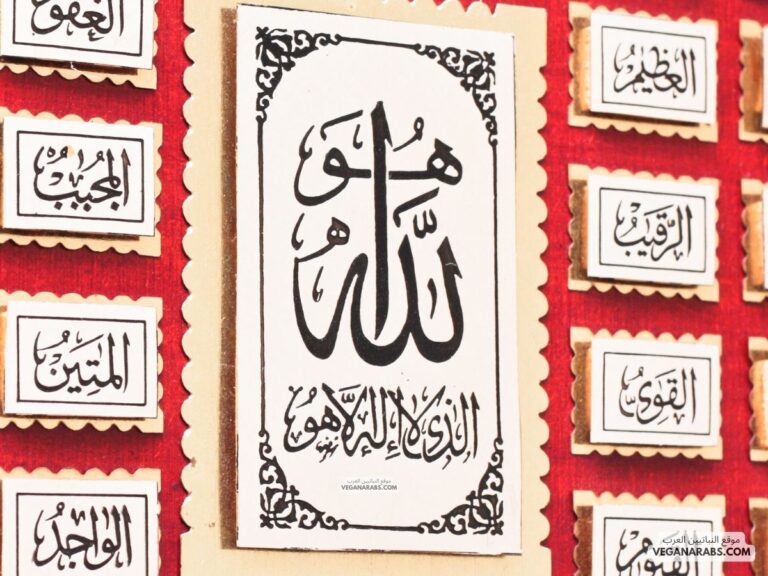 هُوَ
اللّٰه
الذى لا إله إلا هو
موقع النباتيين العرب
VEGANARABS.COM
الغفور
المجيب
المتين
الواجد
العظيم
الرقيب
القوى
القيوم
موقع النباتيين العرب
VEGANARABS.COM